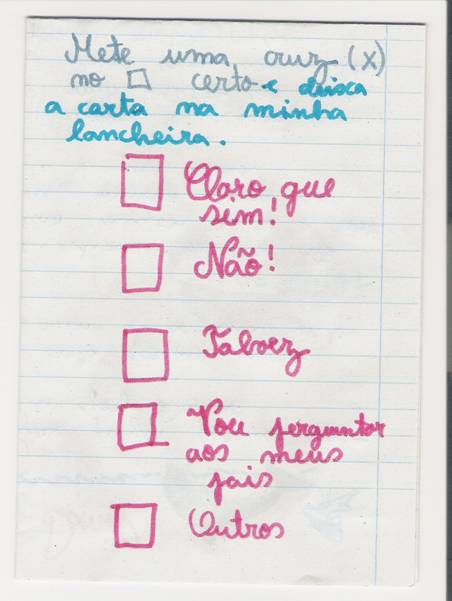 Mete uma cruz (X)
no □ certo e deixa
a carta na minha
lancheira.
Claro que
sim!
Não!
Talvez
Vou perguntar
aos meus
pais
Outros